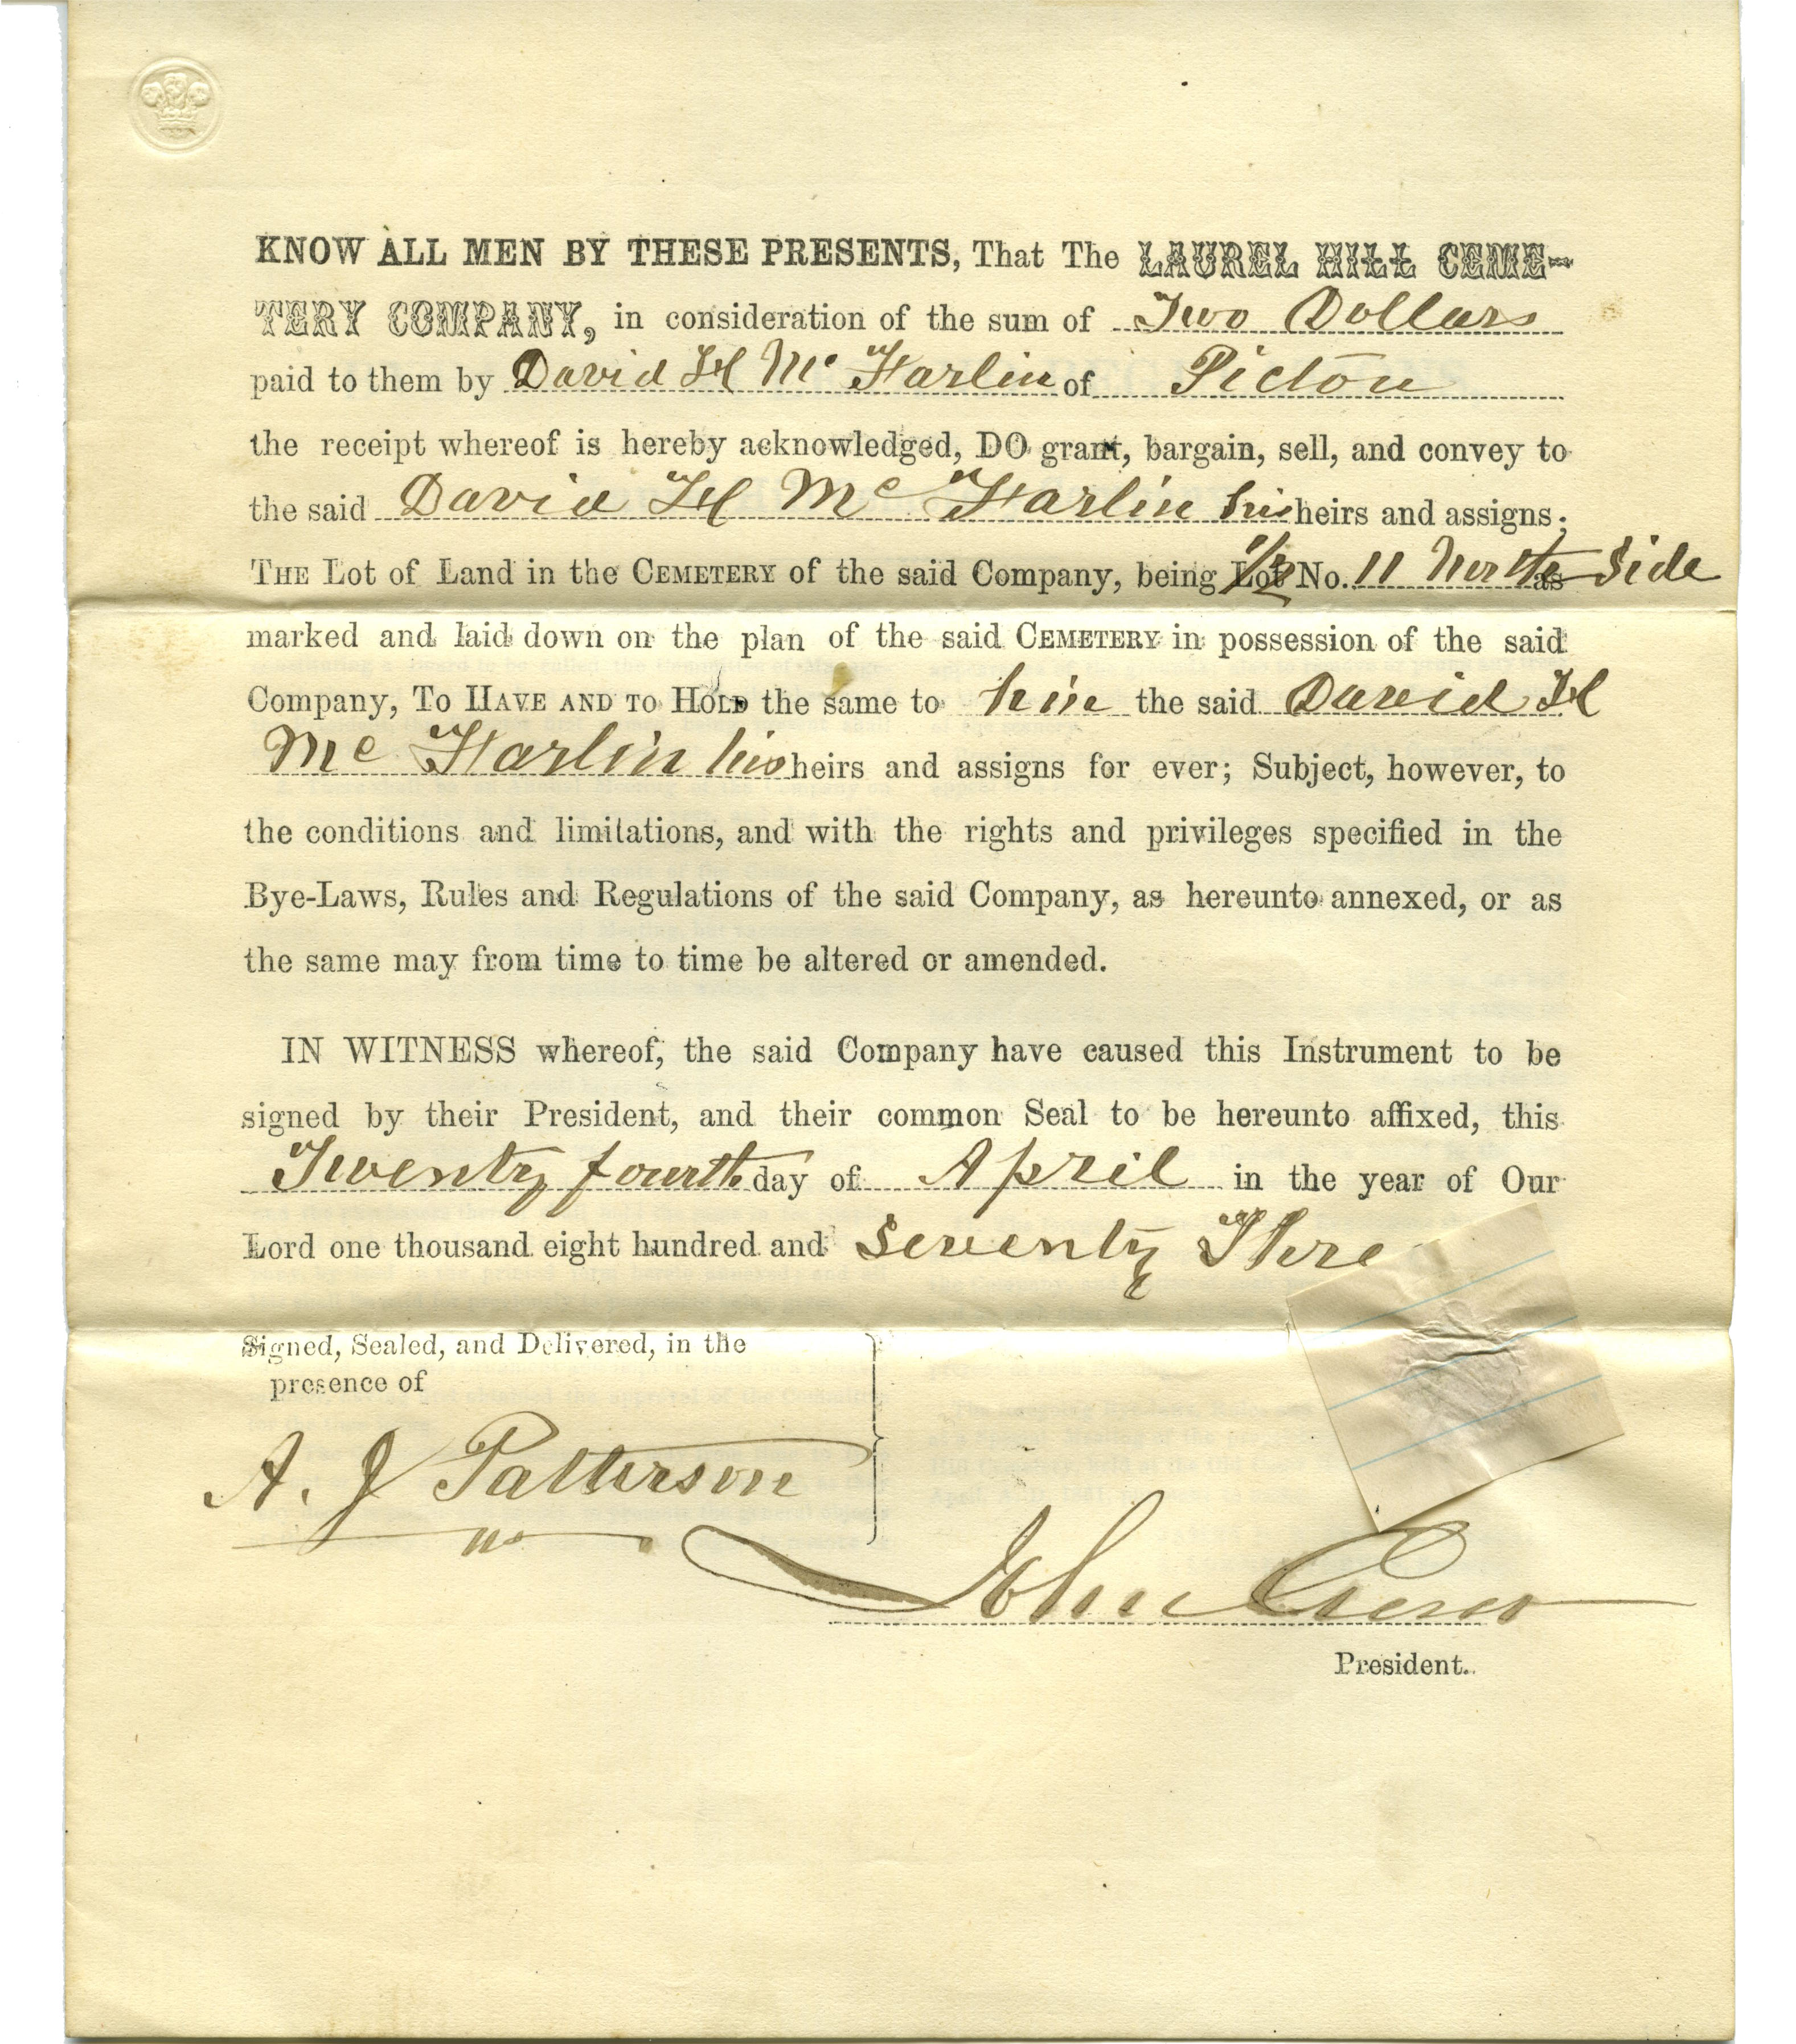 KNOW ALL MEN BY THESE PRESENTS, That The LAUREL HILL CEME-
TERY COMPANY, in consideration of the sum of Two Dollars
paid to them by David H Mc Farlin of Picton
the receipt whereof is hereby acknowledged, DO grant, bargain, sell, and convey to
the said David H Mc Farlin his heirs and assigns;
THE Lot of Land in the CEMETERY of the said Company, being 1/2 Lot No. 11 North Side as
marked and laid down on the plan of the said CEMETERY in possession of the said
Company, TO HAVE AND TO HOLD the same to him the said David H
Mc Farlin his heirs and assigns for ever; Subject, however, to
the conditions and limitations, and with the rights and privileges specified in the
Bye-Laws, Rules and Regulations of the said Company, as hereunto annexed, or as
the same may from time to time be altered or amended.
IN WITNESS whereof, the said Company have caused this Instrument to be
signed by their President, and their common Seal to be hereunto affixed, this
Twenty fourth day of April in the year of Our
Lord one thousand eight hundred and Seventy Thre
Signed, Sealed, and Delivered, in the
presence of
A. J Patterson
John Crerar
President.